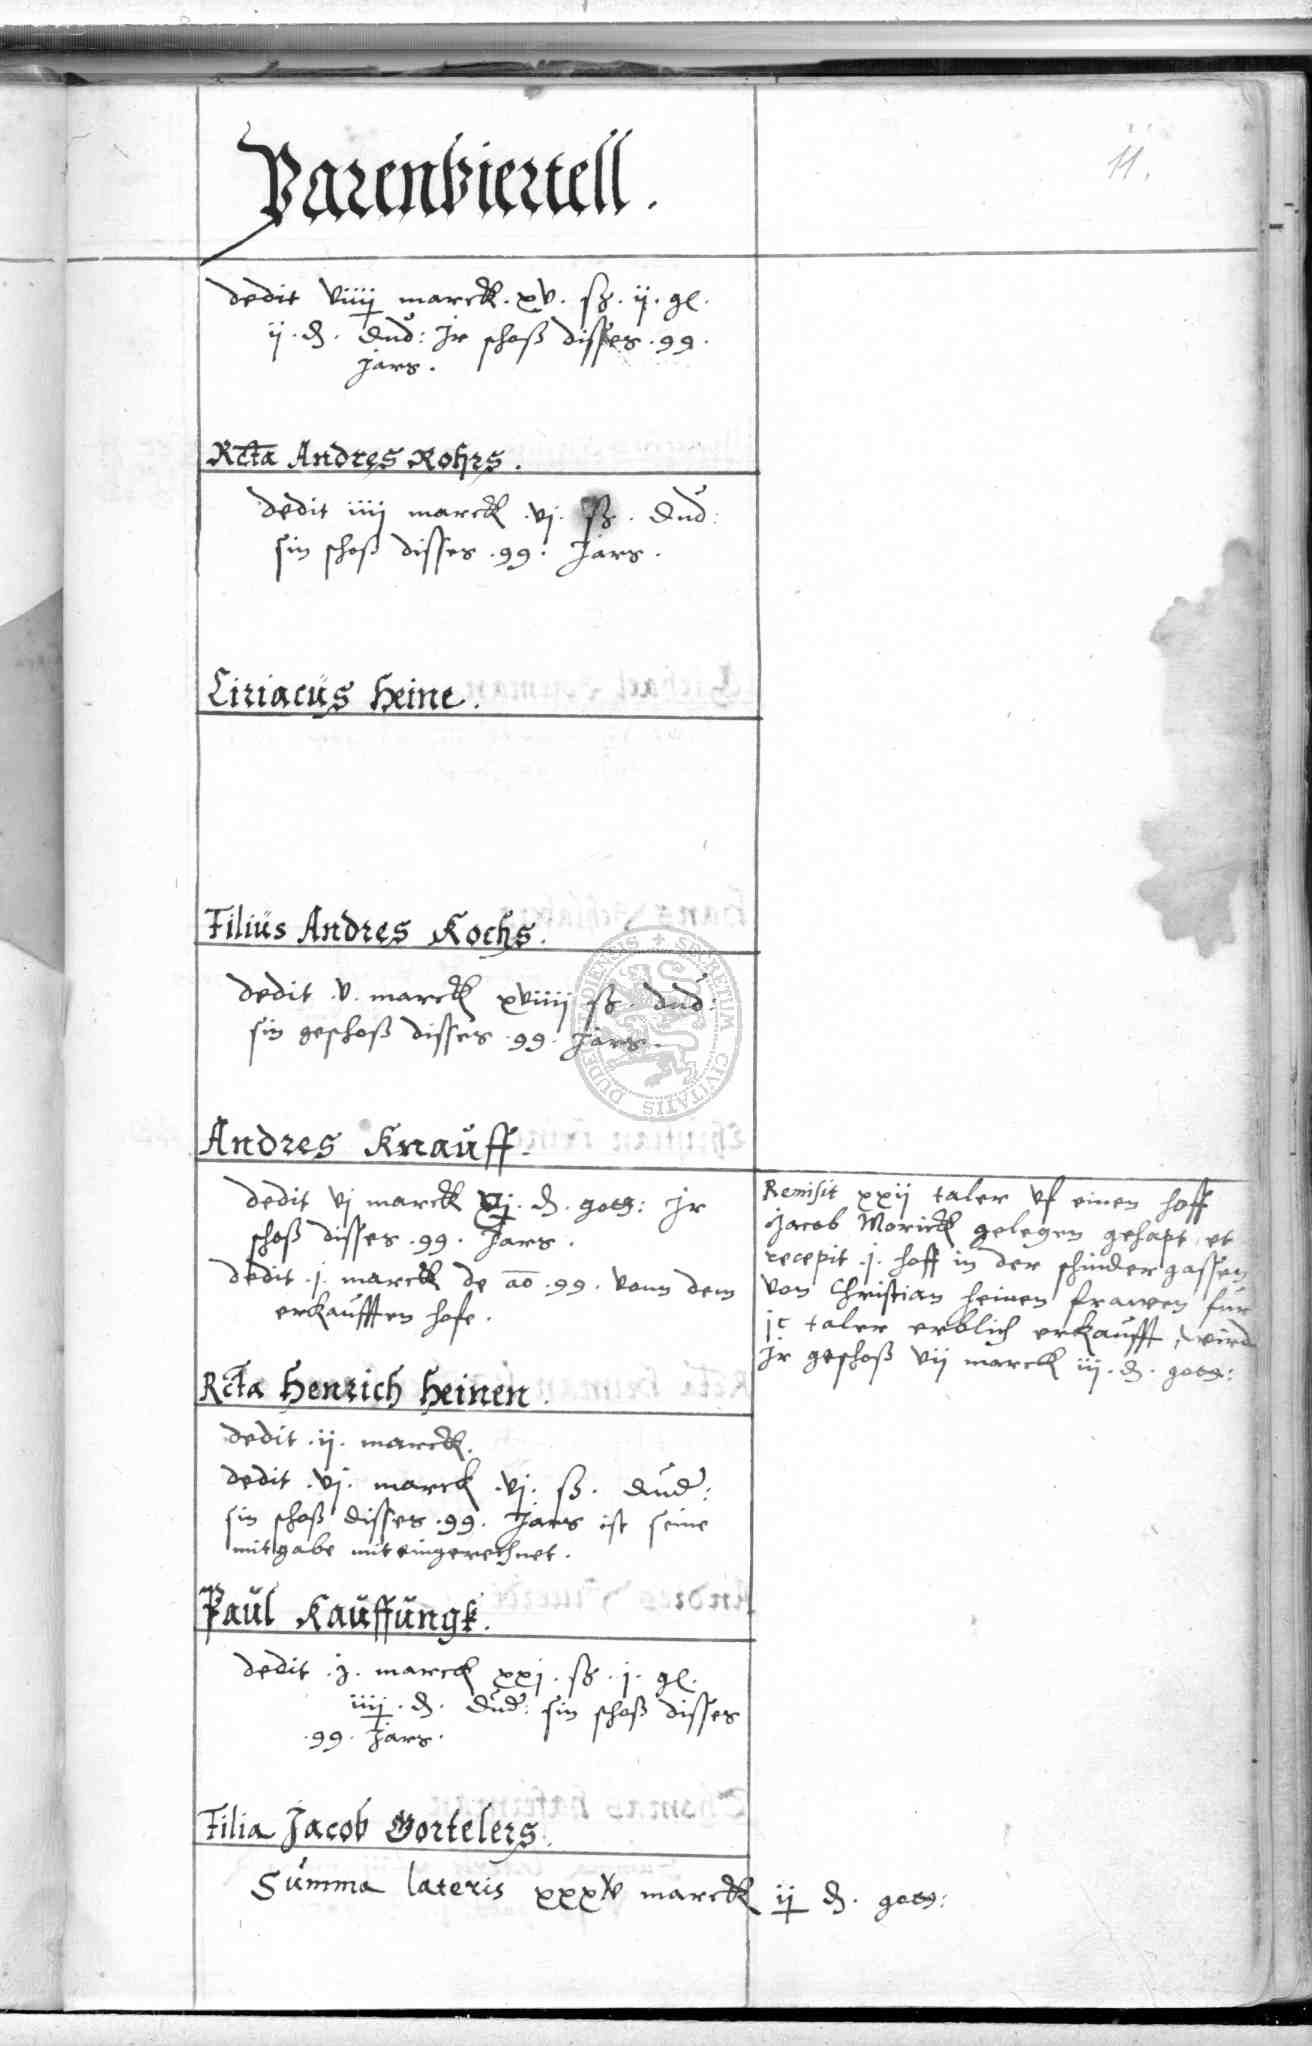 11.
Barenviertell.
dedit viiij marck. xv. sz. ij. gl.
ij. d. dud: Jr schoß disses .99.
jars.
Rcta Andres Rohrs.
dedit iiij marck .vj. sz. dud:
sin schoß disses .99. Jars.
Ciriacus Heine.
Filius Andres Kochs.
dedit .v. marck xviiij sz. dud:
sin geschoß disses .99. Jars.
Andres Knauff.
dedit vj marck vj. d. gotg: Jr
schoß disses .99. Jars.
dedit .j. marck de ao .99. vonn dem
erkaufften hofe.
Remisit xxij taler vf einen hoff
Jacob Morick gelegen gehapt, et
recepit .j. hoff in der schinder gassen
von Christian heinen frawen für
jc taler erblich erkaufft, wird
Jr geschoß vij marck iij. d. gotg:
Rcta Henrich Heinen.
dedit .ij. marck.
dedit .vj. marck .vj. sz. dud:
sin schoß disses .99. Jars ist seine
mitgabe mit eingerechnet.
Paul Kauffungk.
dedit .j. marck xxj. sz. j. gl.
iiij. d. dud: sin schoß disses
.99. Jars.
Filia Jacob Gortelers.
Summa lateris xxxiv marck ij d. gotg:
SECRETUM CIVITATIS DUDERSTADIENSIS